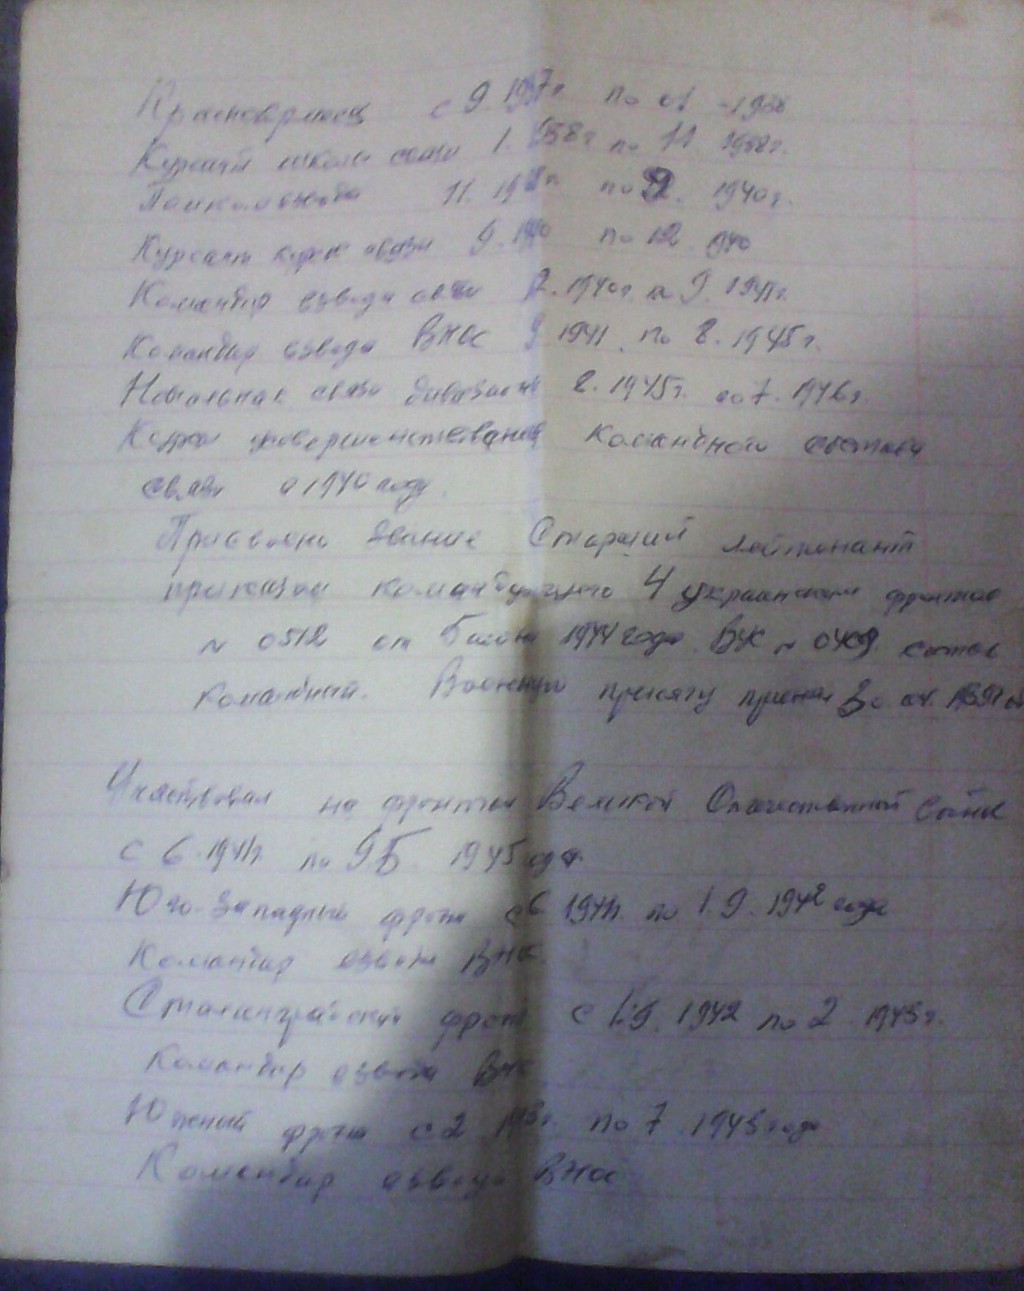 Красноармеец с 9.1937г. по 01-1938
Курсант школы связи 1.1938г по 11.1938г.
Помкомвзвода 11.1938г по 9. 1940г.
Курсант курсов связи 9.1940 по 12 940
Командир взвода связи 1940г. по 9. 1941г.
Командир взвода ВНОС 9 1941 по 8. 1945г.
Начальник связи дивизиона 8.1945г. по 7.1946г.
Курсы усовершенствования командного состава
связи в 1940 году.
Присвоено звание Старший лейтенант
приказом командующего 4 украинским фронтом
№ 0512 от 1944 года. ВУС № состав
командный. Военную присягу принял
Участвовал на фронтах Великой Отечественной войны
с 6.1941г. по 9 5. 1945 года.
Юго-Западный фронт с 6 1941г. по 1.9.1942 года
Командир взвода ВНОС.
Сталинградский фронт с 1.9.1942 по 2 1943г.
Командир взвода ВНОС
Южный фронт с 2 1943г. по 7 1943 года
Командир взвода ВНОС